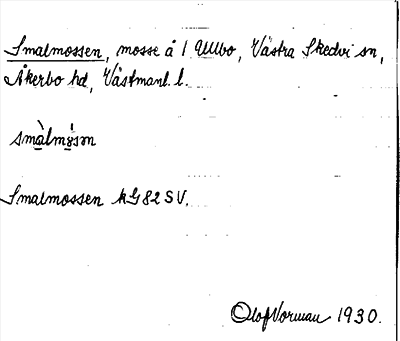 Smalmossen, mosse å 1 Ullbo, Västra Skedvi sn,
Åkerbo hd, Västmanl. l.
smàlmåsən
Smalmossen kG82SV.
Olof Vorman 1930.